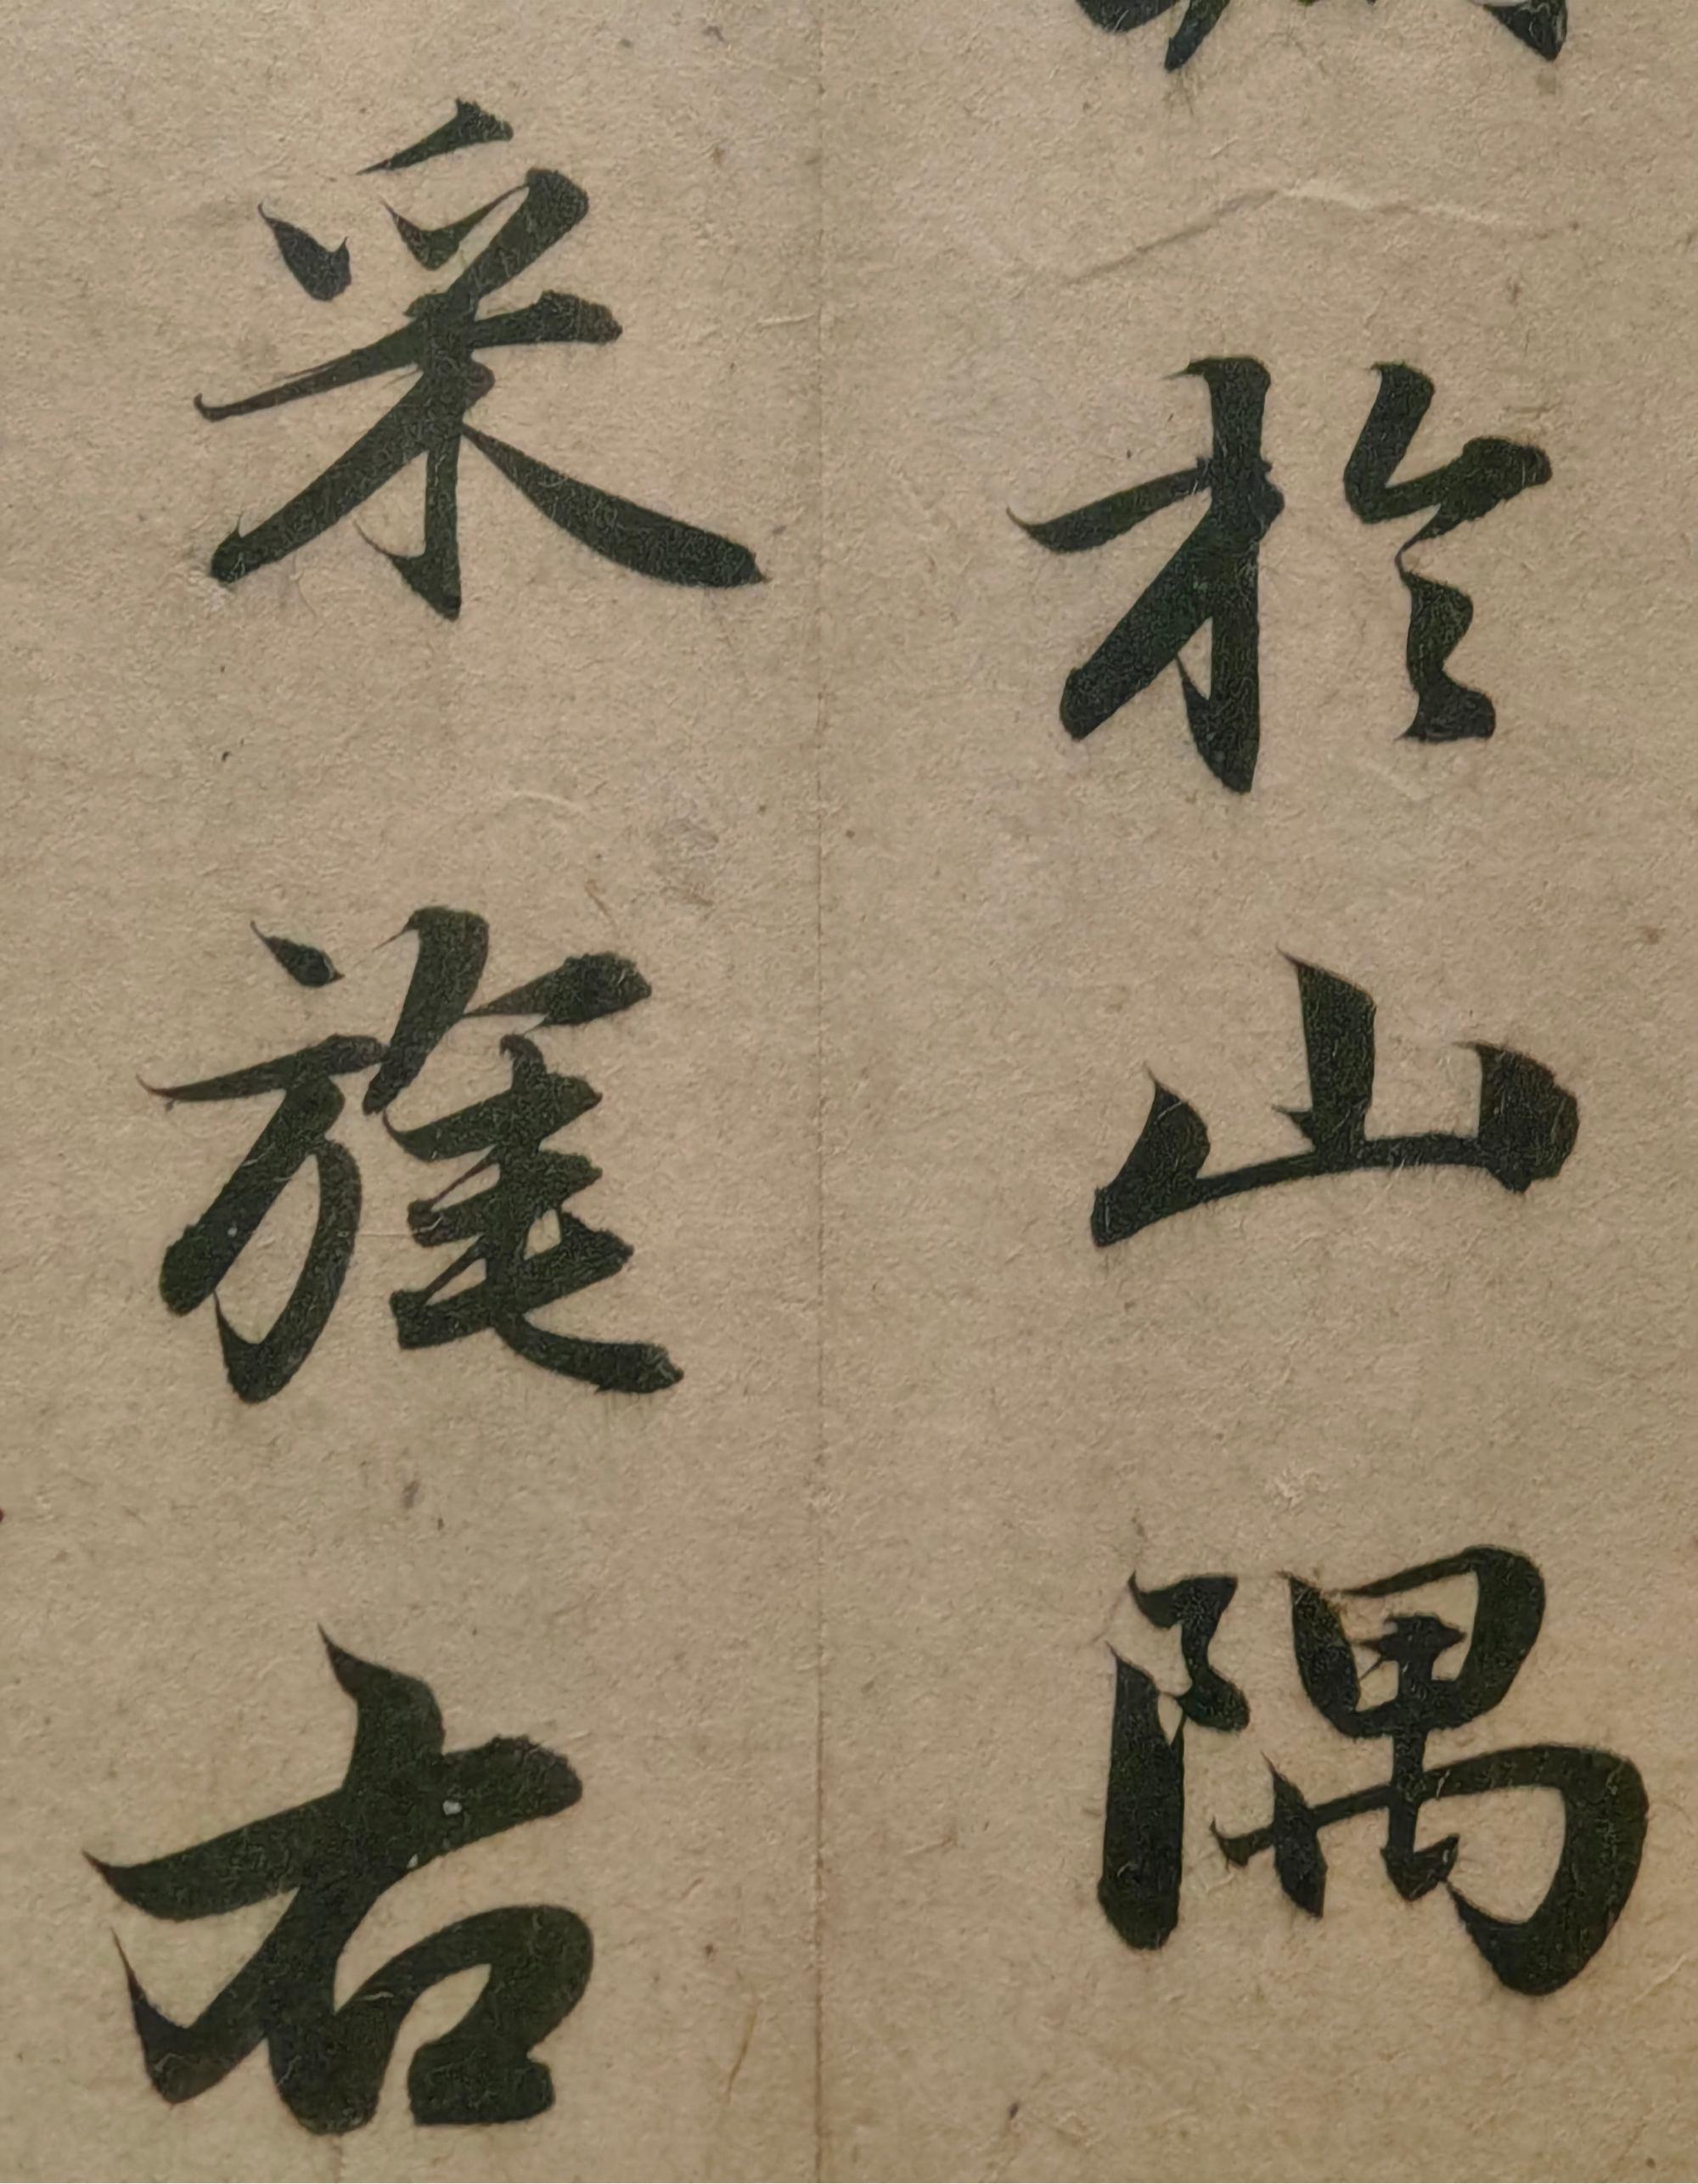 於山隅
采旄右